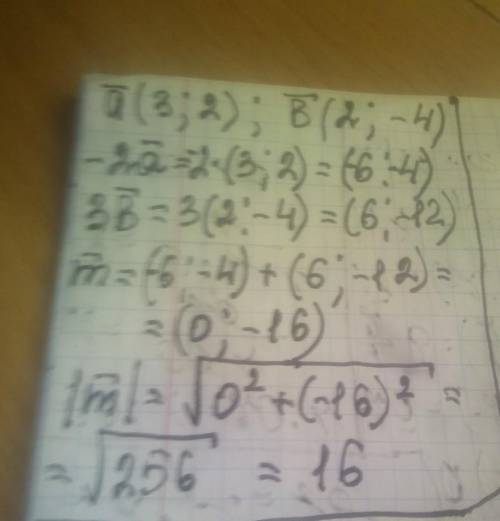 a̅(3;2); b̅(2;-4)
-2a̅=-2·(3;2)=(-6;-4)
3b̅=3(2;-4)=(6;-12)
m̅=(-6;-4)+(6;-12)=
=(0;-16)
|m̅|=√(0²+(-16)²)=
=√256 =16